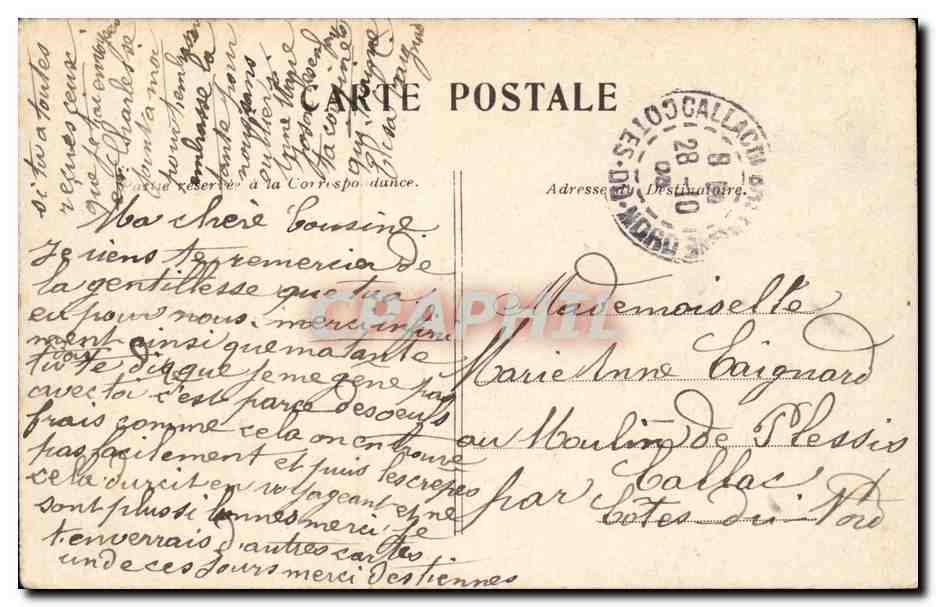 CARTE POSTALE
Partie réservée à la Correspondance.
Adresse du Destinataire.
CALLAC
COTES-DU-NORD
28 -10
08
CPAPHIL
Ma chère Cousine
Je viens te remercier de
la gentillesse que tu a
eu pour nous. merci infini
ment ainsi que ma tante
tu te dis que je me gene pas
avec toi c'est parce des oeufs
frais comme cela on en trouve
pas facilement et puis les crepes
cela durcit en voyageant et ne
sont plus si bonnes merci je
t'enverrais d'autres cartes
un de ces jours merci des tiennes
si tu a toutes
reçues ceux
que t'ai
en Charles te
pour
embrasse la
tante pour
nous
Mademoiselle
Marie Anne Caignard
au Moulin de Plessis
par Callac
Côtes du Nord